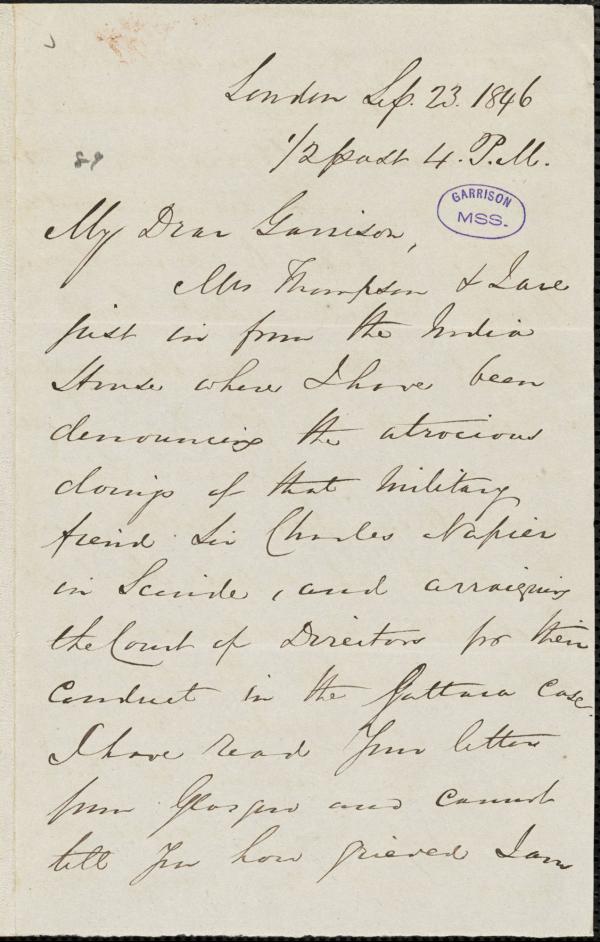 London Sep. 23. 1846
1/2 past 4. P.M.
89
GARRISON
MSS.
My Dear Garrison,
Mrs Thompson & I are
just in from the India
House where I have been
denouncing the atrocious
doings of that military
fiend Sir Charles Napier
in Scinde, and arraigning
the Court of Directors for their
conduct in the Sattara case.
I have read your letter
from Glasgow and cannot
tell you how grieved I am